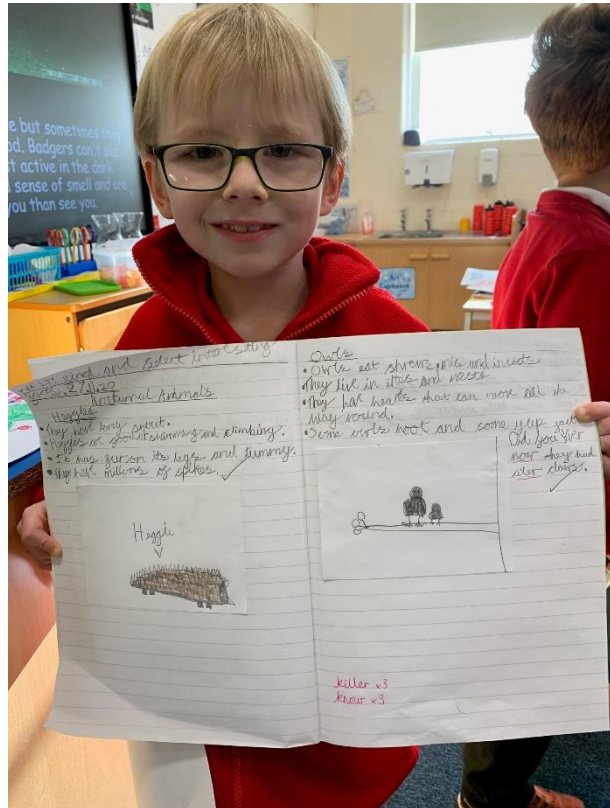 e but sometimes they
od. Badgers can't see
t active in the dark
l sense of smell and are
you than see you.
find and select interesting
2/11.20
Nocturnal Animals
Heggies
• They have long snout.
• Heggies are good at swimming and climbing.
• It has fur on its legs and tummy.
• They have millions of spikes.
Heggie
Owls
• Owls eat shrews, mice and insects.
• They live in and nests.
• They have that can move all the
way round.
• Some owls hoot and some yelp
Did you ever
now they had
claws.
killer x3
know x3